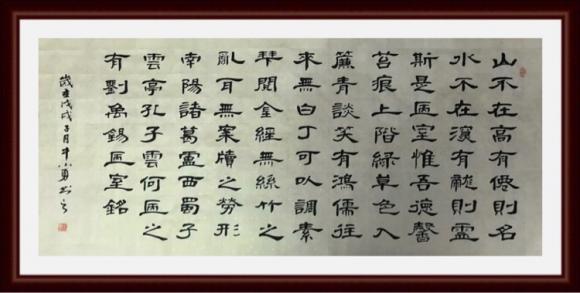 山不在高有僊則名
水不在深有龍則靈
斯是陋室惟吾德馨
苔痕上階緑草色入
簾青談笑有鴻儒往
來無白丁可以調素
琴閱金經無絲竹之
亂耳無案牘之勞形
南陽諸葛廬西蜀子
雲亭孔子雲何陋之
有劉禹錫陋室銘
歲在戊戌子月牛小勇